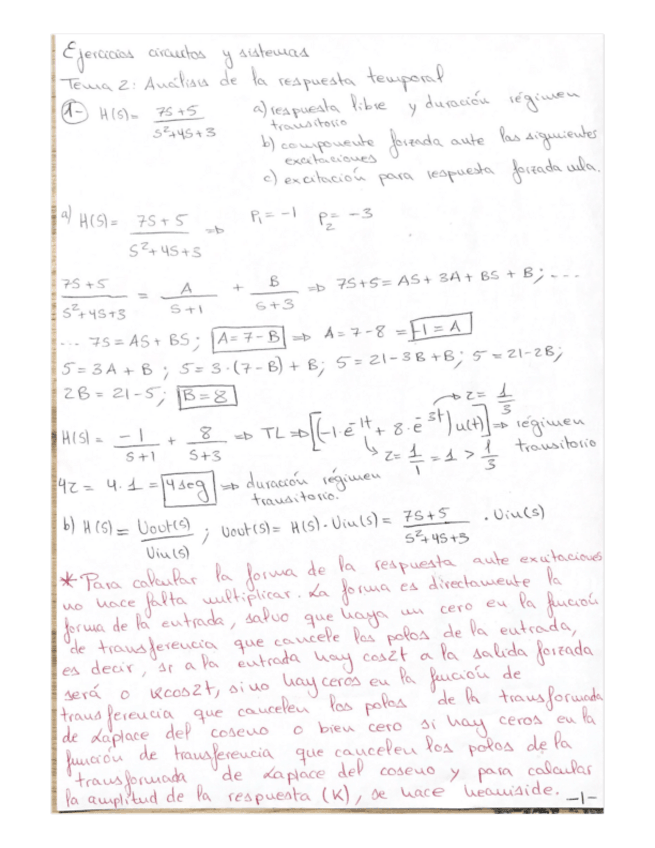 Ejercicios circuitos y sistemas
Tema 2: Análisis de la respuesta temporal
1- H(s)= 7s+5 / s²+4s+3 a) respuesta libre y duración régimen
transitorio
b) componente forzada ante las siguientes
excitaciones
c) excitación para respuesta forzada nula.
a) H(s)= 7s+5 / s²+4s+3 => P₁=-1 P₂=-3
7s+5 / s²+4s+3 = A / s+1 + B / s+3 => 7s+5= As+3A+Bs+B; ...
... 7s=As+Bs; A=7-B => A=7-8 = -1=A
5=3A+B ; 5=3·(7-B)+B; 5=21-3B+B; 5=21-2B;
2B=21-5; B=8
H(s)= -1 / s+1 + 8 / s+3 => TL => [(-1·e^-1t + 8·e^-3t) u(t)] => régimen transitorio
z= 1/3
z= 1/1 = 1 > 1/3
4z= 4·1 = 4seg => duración régimen
transitorio.
b) H(s)= Uout(s) / Uin(s) ; Uout(s)= H(s)·Uin(s)= 7s+5 / s²+4s+3 · Uin(s)
* Para calcular la forma de la respuesta ante excitaciones
no hace falta multiplicar. La forma es directamente la
forma de la entrada, salvo que haya un cero en la función
de transferencia que cancele los polos de la entrada,
es decir, si a la entrada hay cos2t a la salida forzada
será o Kcos2t, si no hay ceros en la función de
transferencia que cancelen los polos de la transformada
de Laplace del coseno o bien cero si hay ceros en la
función de transferencia que cancelen los polos de la
transformada de Laplace del coseno y para calcular
la amplitud de la respuesta (K), se hace heaviside.
-1-